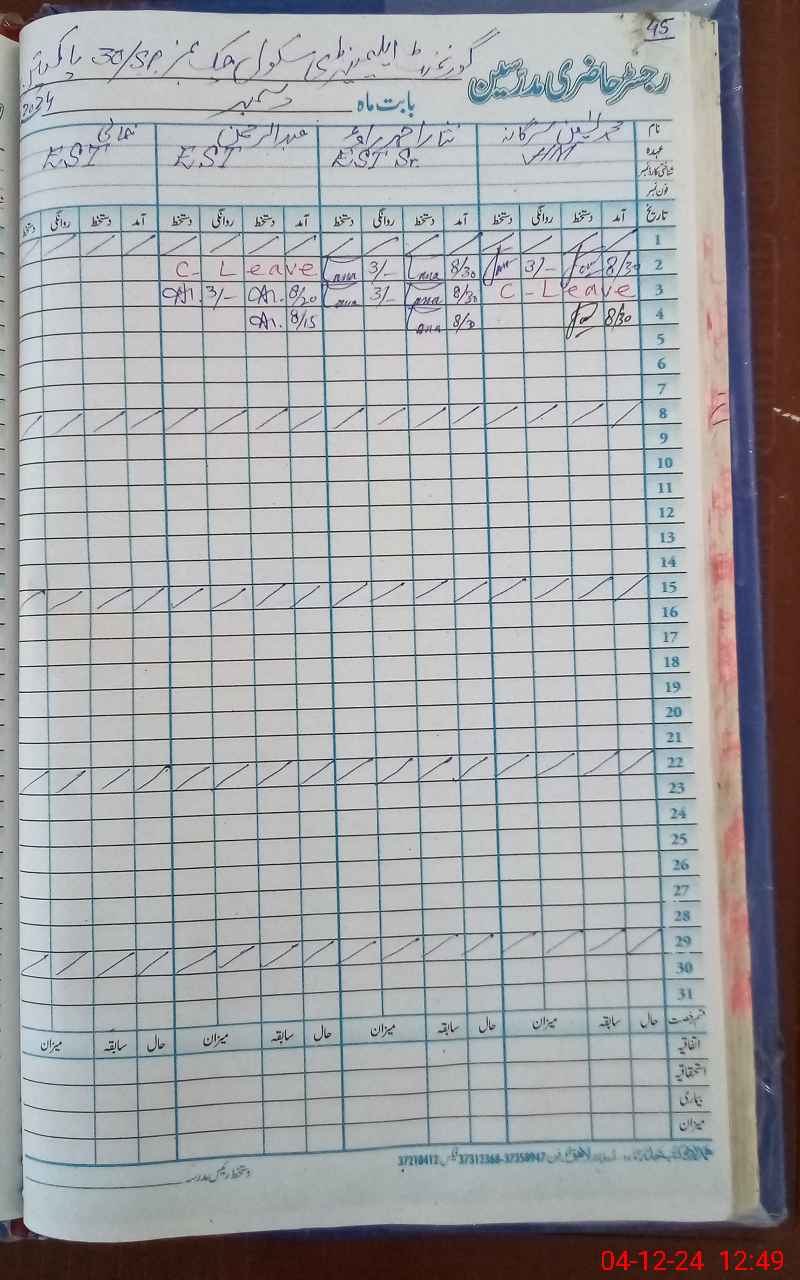 45
رجسٹر حاضری مدرسین گورنمنٹ ایلیمنٹری سکول چک نمبر 30/SP پاکپتن
بابت ماہ دسمبر 2024
نام محمد عبدالرحمن
عہدہ HM EST Sr. EST EST
شناختی کارڈ نمبر
فون نمبر
تاریخ آمد دستخط روانگی دستخط آمد دستخط روانگی دستخط آمد دستخط روانگی دستخط آمد دستخط روانگی دستخط
1
2 8/30 3/- 8/30 3/- C- Leave
3 C-Leave 8/30 3/- 8/20 3/-
4 8/30 8/30 8/15
5
6
7
8
9
10
11
12
13
14
15
16
17
18
19
20
21
22
23
24
25
26
27
28
29
30
31
قسم رخصت حال سابقہ میزان حال سابقہ میزان حال سابقہ میزان حال سابقہ میزان
اتفاقیہ
استحقاقیہ
بیماری
میزان
37210412 فیکس 37312368-37350947
دستخط رئیس مدرسہ
04-12-24 12:49